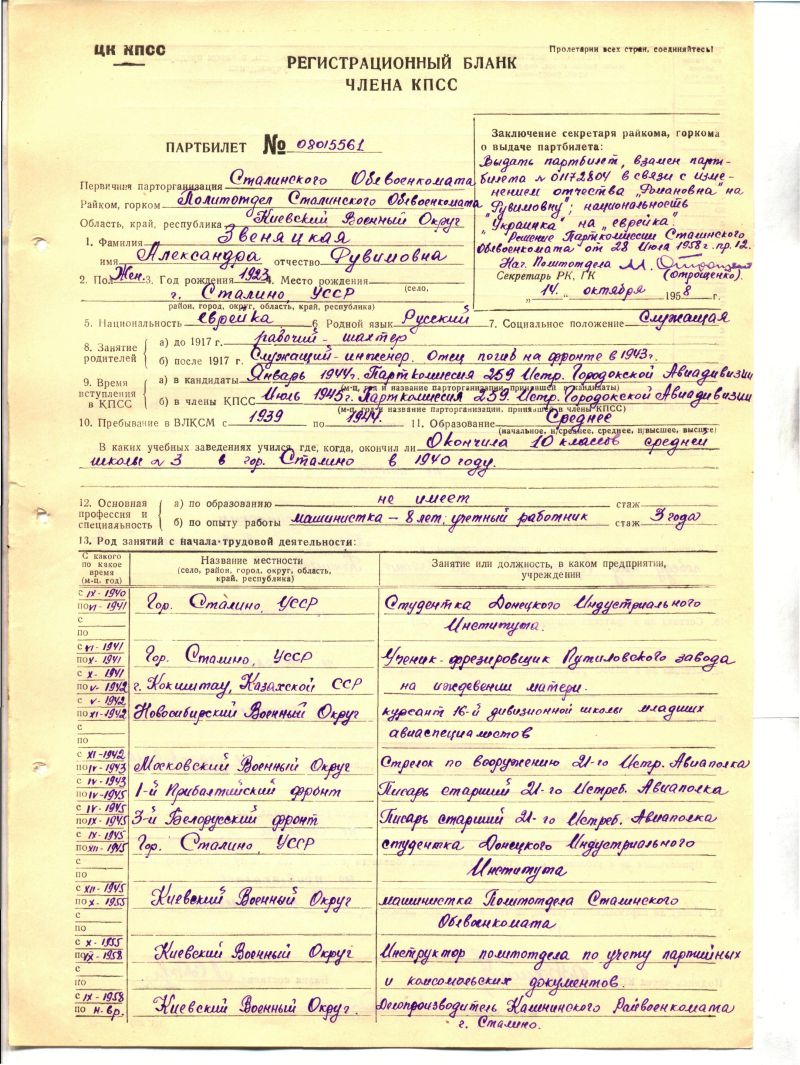 ЦК КПСС
Пролетарии всех стран, соединяйтесь!
РЕГИСТРАЦИОННЫЙ БЛАНК
ЧЛЕНА КПСС
ПАРТБИЛЕТ № 08015561
Первичная парторганизация Сталинского Облвоенкомата
Райком, горком Политотдел Сталинского Облвоенкомата
Область, край, республика Киевский Военный Округ
1. Фамилия Звеняцкая
имя Александра отчество Рувимовна
2. Пол Жен. 3. Год рождения 1923 4. Место рождения (село,
г. Сталино, УССР
район, город, округ, область, край, республика)
Заключение секретаря райкома, горкома
о выдаче партбилета:
Выдать партбилет, взамен парт-
билета № 01172804 в связи с изме-
нением отчества „Романовна" на
„Рувимовну"; национальность
„Украинка" на „еврейка".
Решение Парткомиссии Сталинского
Облвоенкомата от 28 Июля 1958 г. пр. 12.
Нач. Политотдела
Секретарь РК, ГК (Отрощенко).
„14" октября 1958 г.
5. Национальность еврейка 6 Родной язык Русский 7. Социальное положение Служащая
8. Занятие родителей
а) до 1917 г. рабочий - шахтер
б) после 1917 г. Служащий-инженер. Отец погиб на фронте в 1943 г.
9. Время вступления в КПСС
а) в кандидаты Январь 1944 г. Парткомиссия 259 Истр. Городокской Авиадивизии
(м-ц, год и название парторганизации, принявшей в кандидаты)
б) в члены КПСС Июль 1945 г. Парткомиссия 259 Истр. Городокской Авиадивизии
(м-ц, год и название парторганизации, принявшей в члены КПСС)
10. Пребывание в ВЛКСМ с 1939 по 1944. 11. Образование Среднее
(начальное, н/среднее, среднее, н/высшее, высшее)
В каких учебных заведениях учился, где, когда, окончил ли Окончила 10 классов средней
школы № 3 в гор. Сталино в 1940 году.
12. Основная профессия и специальность
а) по образованию не имеет стаж
б) по опыту работы машинистка - 8 лет; учетный работник стаж 3 года
13. Род занятий с начала трудовой деятельности:
С какого по какое время (м-ц, год)
Название местности
(село, район, город, округ, область, край, республика)
Занятие или должность, в каком предприятии, учреждении
с IX-1940 Гор. Сталино, УССР Студентка Донецкого Индустриального
по VI-1941 Института.
с
по
с VI-1941
по X-1941 Гор. Сталино, УССР Ученик-фрезировщик Путиловского завода
с X-1941
по V-1942 г. Кокштау, Казахской ССР на иждевении матери.
с V-1942
по XI-1942 Новосибирский Военный Округ курсант 16-й дивизионной школы младших
с авиаспециалостов
по
с XI-1942
по IV-1943 Московский Военный Округ Стрелок по вооружению 21-го Истр. Авиаполка
с IV-1943
по IV-1945 1-й Прибалтийский фронт Писарь старший 21-го Истреб. Авиаполка
с IV-1945
по IX-1945 3-й Белорусский фронт Писарь старший 21-го Истреб. Авиаполка
с IX-1945
по XII-1945 Гор. Сталино, УССР студентка Донецкого Индустриального
с Института
по
с XII-1945
по X-1955 Киевский Военный Округ машинистка Политотдела Сталинского
с Облвоенкомата
по
с X-1955
по IX-1958 Киевский Военный Округ Инструктор политотдела по учету партийных
с и комсомольских документов.
по
с IX-1958
по н. вр. Киевский Военный Округ. Делопроизводитель Калининского Райвоенкомата
г. Сталино.